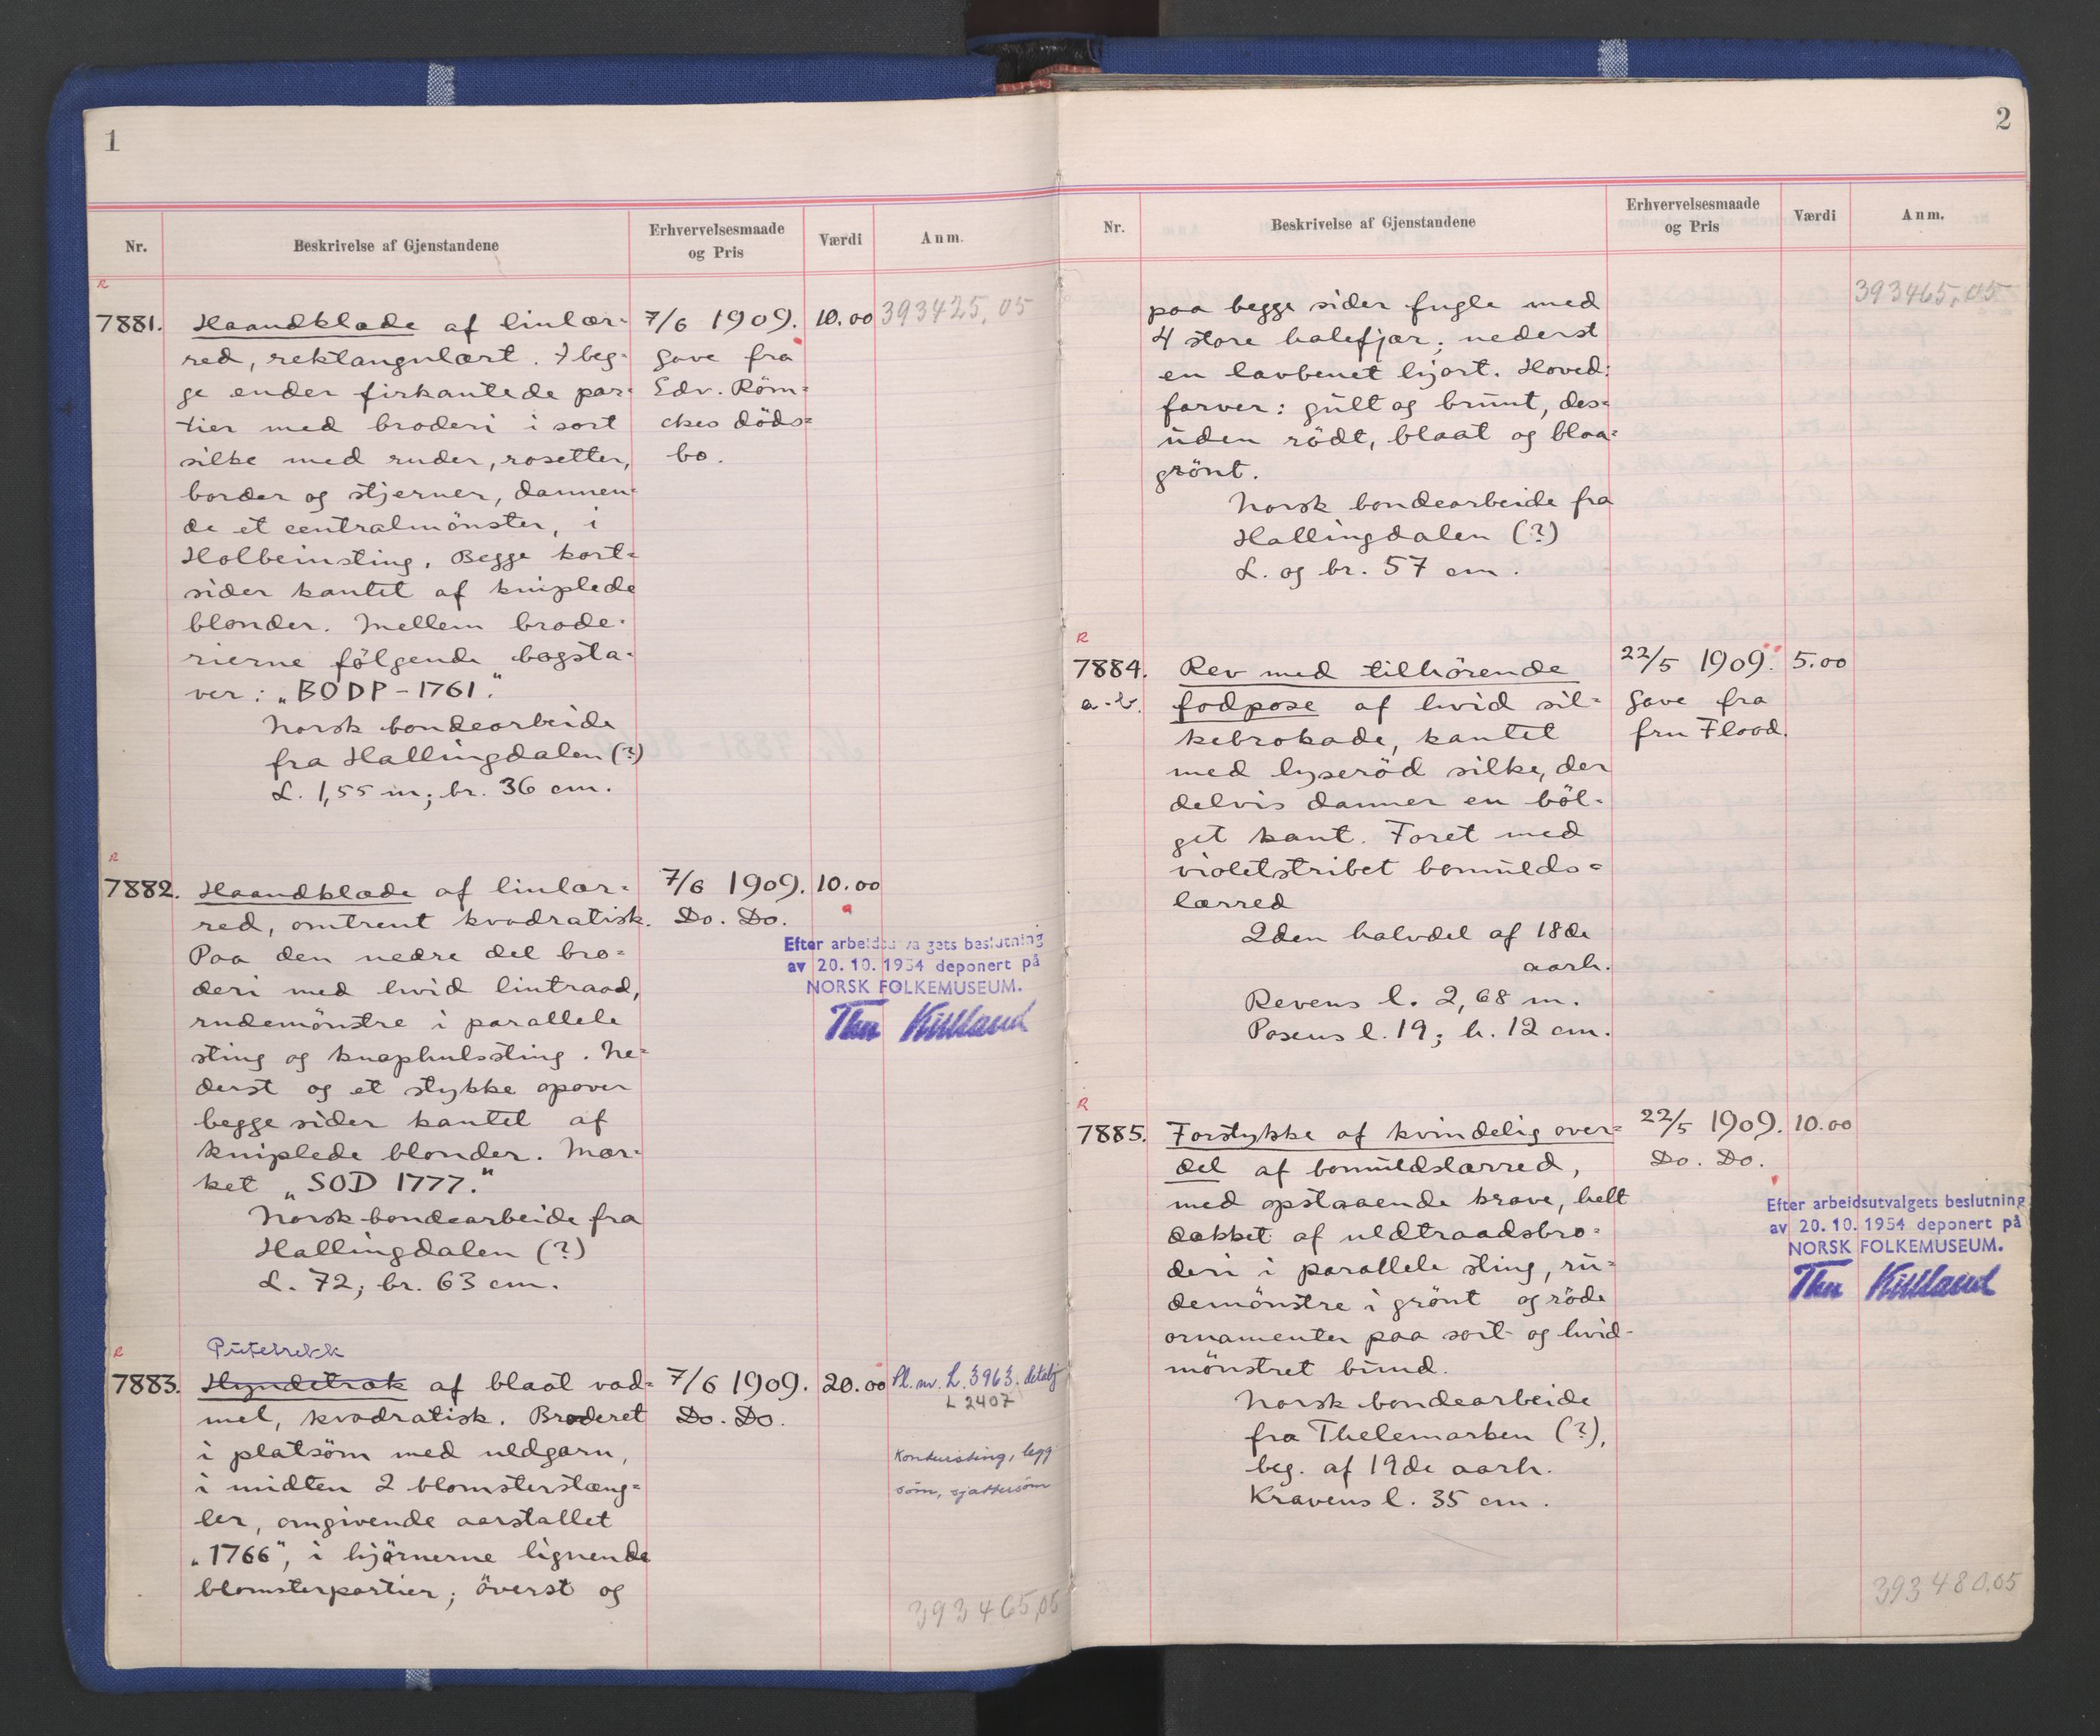 1
Nr.
Beskrivelse af Gjenstandene
Erhvervelsesmaade
og Pris
Værdi
Anm.
R
7881. Haandklæde af linlær- 7/6 1909. 10.00 393425,05
red, rektangulært. I beg- Gave fra
ge ender firkantede par- Edv. Röm-
tier med broderi i sort ckes döds-
silke med ruder, rosetter, bo.
border og stjerner, dannen-
de et centralmönster, i
Holbeinsting. Begge kort-
sider kantet af kniplede
blonder. Mellem brode-
rierne fölgende bogsta-
ver: „BODP-1761."
Norsk bondearbeide
fra Hallingdalen (?)
L. 1,55 m; br. 36 cm.
R
7882. Haandklæde af linlær- 7/6 1909. 10.00
red, omtrent kvadratisk. Do. Do.
Paa den nedre del bro-
deri med hvid lintraad,
rudemönstre i parallele
sting og knaphulssting. Ne-
derst og et stykke opover
begge sider kantet af
kniplede blonder. Mær-
ket „SOD 1777."
Norsk bondearbeide fra
Hallingdalen (?)
L. 72; br. 63 cm.
Efter arbeidsutvalgets beslutning
av 20. 10. 1954 deponert på
NORSK FOLKEMUSEUM.
Thv Kielland
Putetrekk
R
7883. Hyndetræk af blaat vad- 7/6 1909. 20.00 Pl. nr. L. 3963. detalj
L 2407
mel, kvadratisk. Broderet Do. Do.
i platsöm med uldgarn,
i midten 2 blomsterstæng-
ler, omgivende aarstallet
„1766", i hjörnerne lignende
blomsterpartier; överst og
Kontursting, legg
söm, sjattersöm
393465,05
2
Nr.
Beskrivelse af Gjenstandene
Erhvervelsesmaade
og Pris
Værdi
Anm.
393465,05
paa begge sider fugle med
4 store halefjær; nederst
en lavbenet hjort. Hoved-
farver: gult og brunt, des-
uden rödt, blaat og blaa-
grönt.
Norsk bondearbeide fra
Hallingdalen (?)
L. og br. 57 cm.
R
7884. Rev med tilhörende 22/5 1909. 5.00
a-b. fodpose af hvid sil- Gave fra
kebrokade, kantet fru Flood.
med lyseröd silke, der
delvis danner en böl-
get kant. Foret med
violetstribet bomulds-
lærred
2den halvdel af 18de
aarh.
Revens l. 2,68 m.
Posens l. 19; h. 12 cm.
R
7885. Forstykke af kvindelig over- 22/5 1909. 10.00
del af bomuldslærred, Do. Do.
med opstaaende krave, helt
dækket af uldtraadsbro-
deri i parallele sting, ru-
demönstre i grönt og röde
ornamenter paa sort- og hvid-
mönstret bund.
Norsk bondearbeide
fra Thelemarken (?),
beg. af 19de aarh.
Kravens l. 35 cm.
Efter arbeidsutvalgets beslutning
av 20. 10. 1954 deponert på
NORSK FOLKEMUSEUM.
Thv Kielland
393480,05